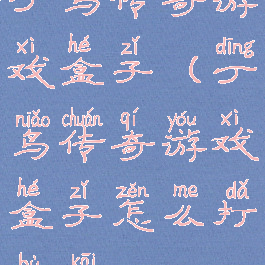 鸟传奇游
xì hé zǐ dīng
戏盒子(丁
niǎo chuán qí yóu xì
鸟传奇游戏
hé zǐ zěn me dǎ
盒子怎么打
bù kāi